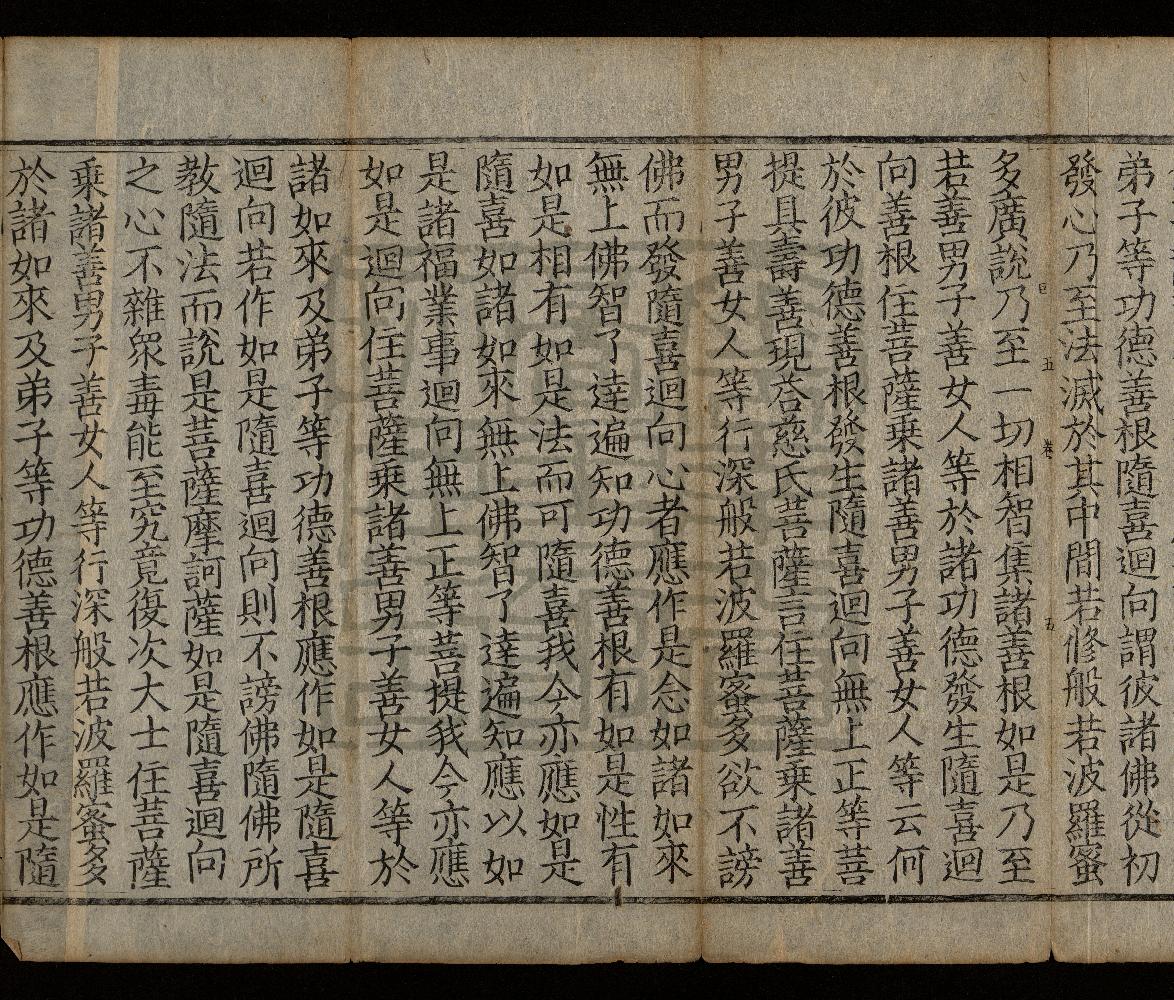 弟子等功德善根隨喜迴向謂彼諸佛從初
發心乃至法滅於其中間若修般若波羅蜜
多廣說乃至一切相智集諸善根如是乃至
若善男子善女人等於諸功德發生隨喜迴
向善根住菩薩乗諸善男子善女人等云何
於彼功德善根發生隨喜迴向無上正等菩
提具壽善現荅慈氏菩薩言住菩薩乗諸善
男子善女人等行深般若波羅蜜多欲不謗
佛而發隨喜迴向心者應作是念如諸如來
無上佛智了達遍知功德善根有如是性有
如是相有如是法而可隨喜我今亦應如是
隨喜如諸如來無上佛智了達遍知應以如
是諸福業事迴向無上正等菩提我今亦應
如是迴向住菩薩乗諸善男子善女人等於
諸如來及弟子等功德善根應作如是隨喜
迴向若作如是隨喜迴向則不謗佛隨佛所
教隨法而說是菩薩摩訶薩如是隨喜迴向
之心不雜衆毒能至究竟復次大士住菩薩
乗諸善男子善女人等行深般若波羅蜜多
於諸如來及弟子等功德善根應作如是隨